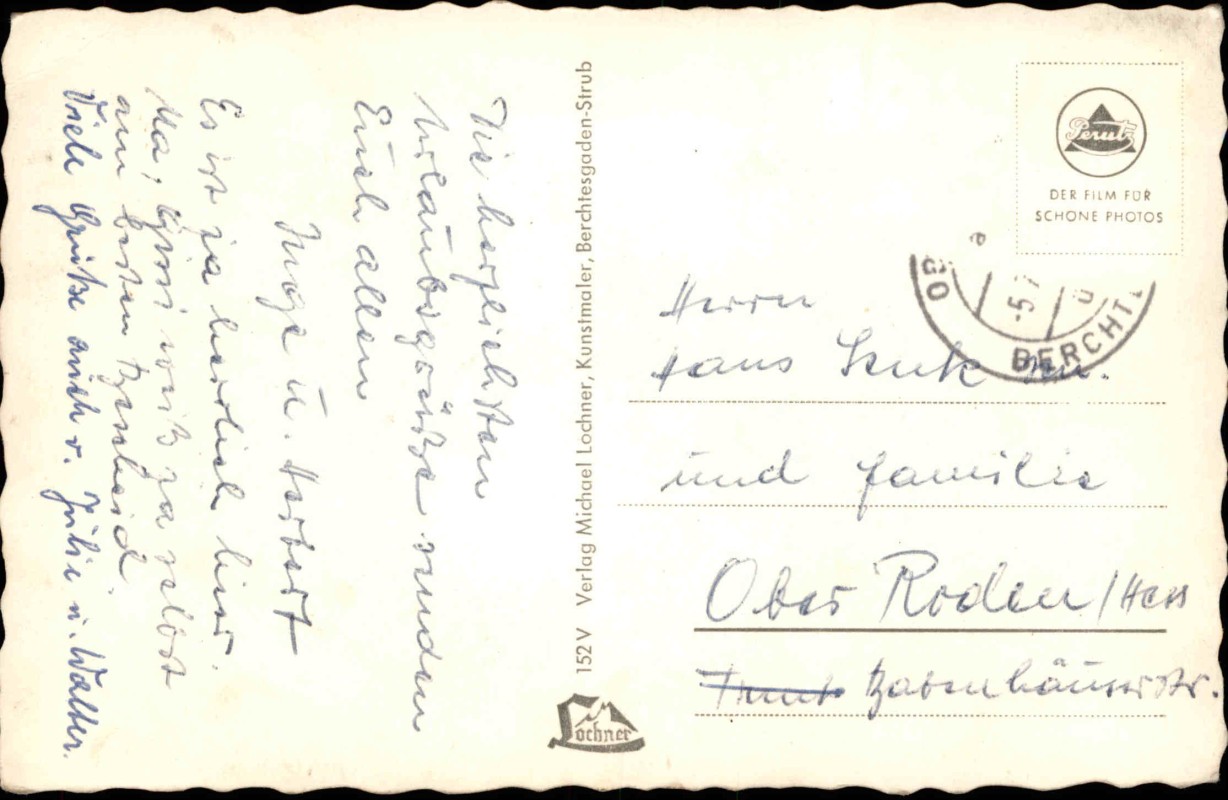 Die herzlichsten
Urlaubsgrüße senden
Euch allen
Inge u. Herbert
Es ist ja herrlich hier.
Na, Gissi weiß ja selbst
am besten Bescheid
Viele Grüße auch v. Julie u. Walter.
152 V Verlag Michael Lochner, Kunstmaler, Berchtesgaden-Strub
Lochner
Perutz
DER FILM FÜR
SCHÖNE PHOTOS
BERCHT
-5.7
Herrn
Hans
und Familie
Ober Roden/Hess
Babenhäuserstr.